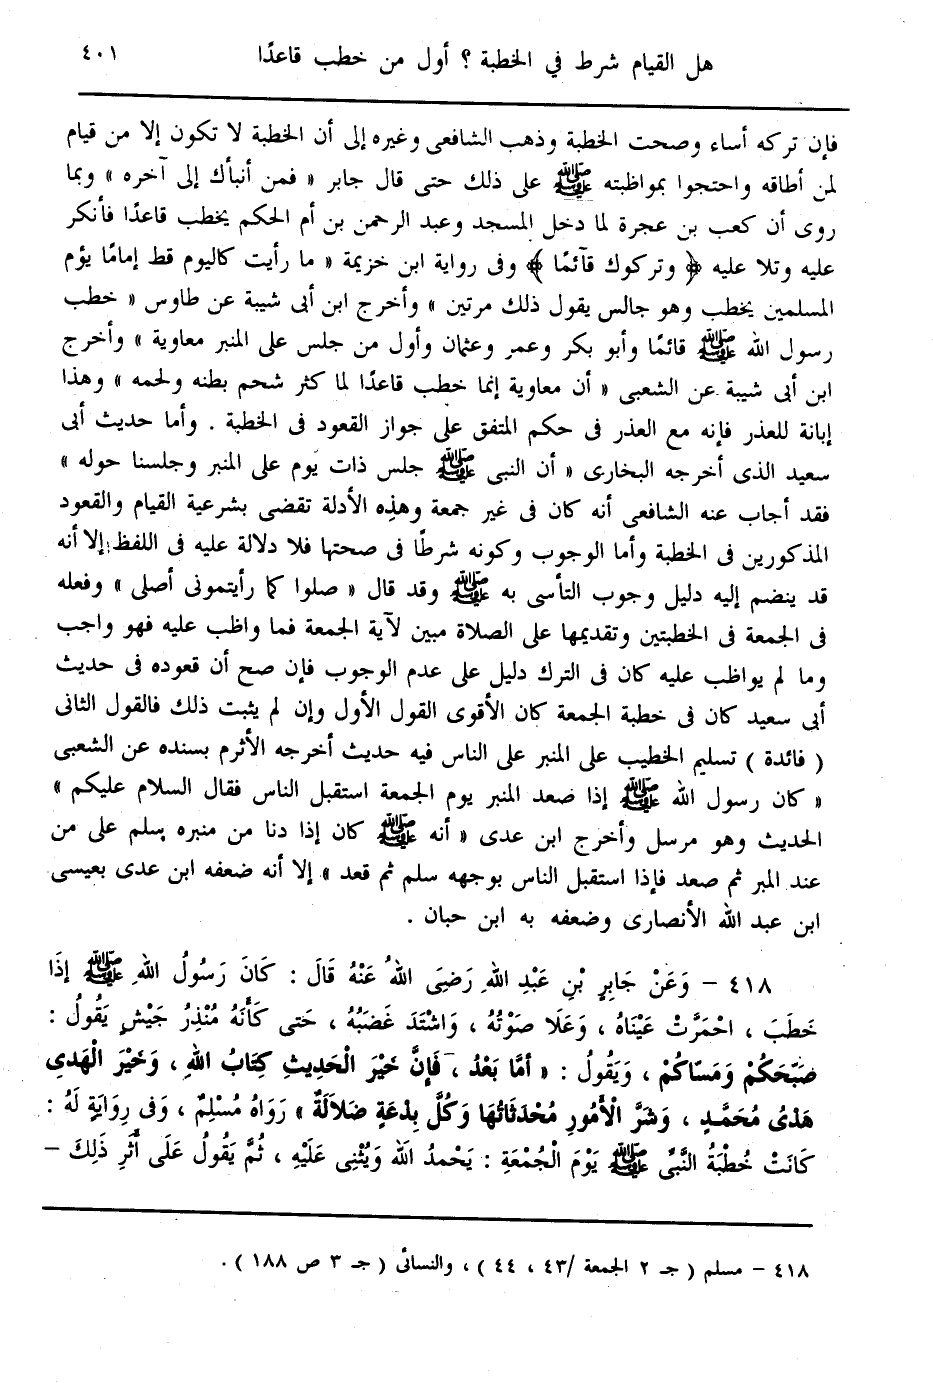 هل القيام شرط في الخطبة ؟ أول من خطب قاعدًا ٤٠١
فإن تركه أساء وصحت الخطبة وذهب الشافعى وغيره إلى أن الخطبة لا تكون إلا من قيام
لمن أطاقه واحتجوا بمواظبته ﷺ على ذلك حتى قال جابر « فمن أنبأك إلى آخره » وبما
روى أن كعب بن عجرة لما دخل المسجد وعبد الرحمن بن أم الحكم يخطب قاعدًا فأنكر
عليه وتلا عليه ﴿ وتركوك قآئمًا ﴾ وفى رواية ابن خزيمة « ما رأيت كاليوم قط إمامًا يؤم
المسلمين يخطب وهو جالس يقول ذلك مرتين » وأخرج ابن أبى شيبة عن طاوس « خطب
رسول الله ﷺ قائمًا وأبو بكر وعمر وعثمان وأول من جلس على المنبر معاوية » وأخرج
ابن أبى شيبة عن الشعبى « أن معاوية إنما خطب قاعدًا لما كثر شحم بطنه ولحمه » وهذا
إبانة للعذر فإنه مع العذر فى حكم المتفق على جواز القعود فى الخطبة . وأما حديث أبى
سعيد الذى أخرجه البخارى « أن النبى ﷺ جلس ذات يوم على المنبر وجلسنا حوله »
فقد أجاب عنه الشافعى أنه كان فى غير جمعة وهذه الأدلة تقضى بشرعية القيام والقعود
المذكورين فى الخطبة وأما الوجوب وكونه شرطًا فى صحتها فلا دلالة عليه فى اللفظ إلا أنه
قد ينضم إليه دليل وجوب التأسى به ﷺ وقد قال « صلوا كما رأيتمونى أصلى » وفعله
فى الجمعة فى الخطبتين وتقديمها على الصلاة مبين لآية الجمعة فما واظب عليه فهو واجب
وما لم يواظب عليه كان فى الترك دليل على عدم الوجوب فإن صح أن قعوده فى حديث
أبى سعيد كان فى خطبة الجمعة كان الأقوى القول الأول وإن لم يثبت ذلك فالقول الثانى
( فائدة ) تسليم الخطيب على المنبر على الناس فيه حديث أخرجه الأثرم بسنده عن الشعبى
« كان رسول الله ﷺ إذا صعد المنبر يوم الجمعة استقبل الناس فقال السلام عليكم »
الحديث وهو مرسل وأخرج ابن عدى « أنه ﷺ كان إذا دنا من منبره يسلم على من
عند المبر ثم صعد فإذا استقبل الناس بوجهه سلم ثم قعد » إلا أنه ضعفه ابن عدى بعيسى
ابن عبد الله الأنصارى وضعفه به ابن حبان .
٤١٨ – وَعَنْ جَابِرِ بْنِ عَبْدِ اللهِ رَضِىَ اللهُ عَنْهُ قَالَ : كَانَ رَسُولُ اللهِ ﷺ إذَا
خَطَبَ ، احْمَرَّتْ عَيْنَاهُ ، وَعَلَا صَوْتُهُ ، وَاشْتَدَ غَضَبُهُ ، حَتى كَأَنَّهُ مُنْذِرُ جَيْشٍ يَقُولُ :
صَبّحَكُمْ وَمَسّاكُمْ ، وَيَقُولُ : « أمَّا بَعْدُ ، فَإنَّ خَيْرَ الْحَدِيثِ كِتَابُ اللهِ ، وَخَيْرَ الْهَدىِ
هَدْىُ مُحَمَّدٍ ، وَشَرَّ الْأمُورِ مُحْدَثَاتُهَا وَكُلَّ بِدْعَةٍ ضَلَالَةٌ » رَوَاهُ مُسْلِمٌ ، وَفى رِوَايَةٍ لَهُ :
كَانَتْ خُطْبَةُ النَّبىِّ ﷺ يَوْمَ الْجُمْعَةِ : يَحْمدُ الله وَيُثْنِى عَلَيْهِ ، ثُمَّ يَقُولُ عَلَى أَثَرِ ذَلِكَ –
٤١٨ – مسلم ( جـ ٢ الجمعة /٤٣ ، ٤٤ ) ، والنسائى ( جـ ٣ ص ١٨٨ ) .